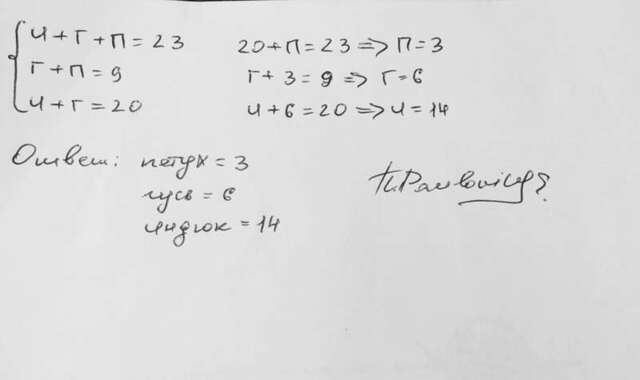 И + Г + П = 23
Г + П = 9
И + Г = 20
20 + П = 23 => П = 3
Г + 3 = 9 => Г = 6
И + 6 = 20 => И = 14
Ответ: петух = 3
гусь = 6
индюк = 14